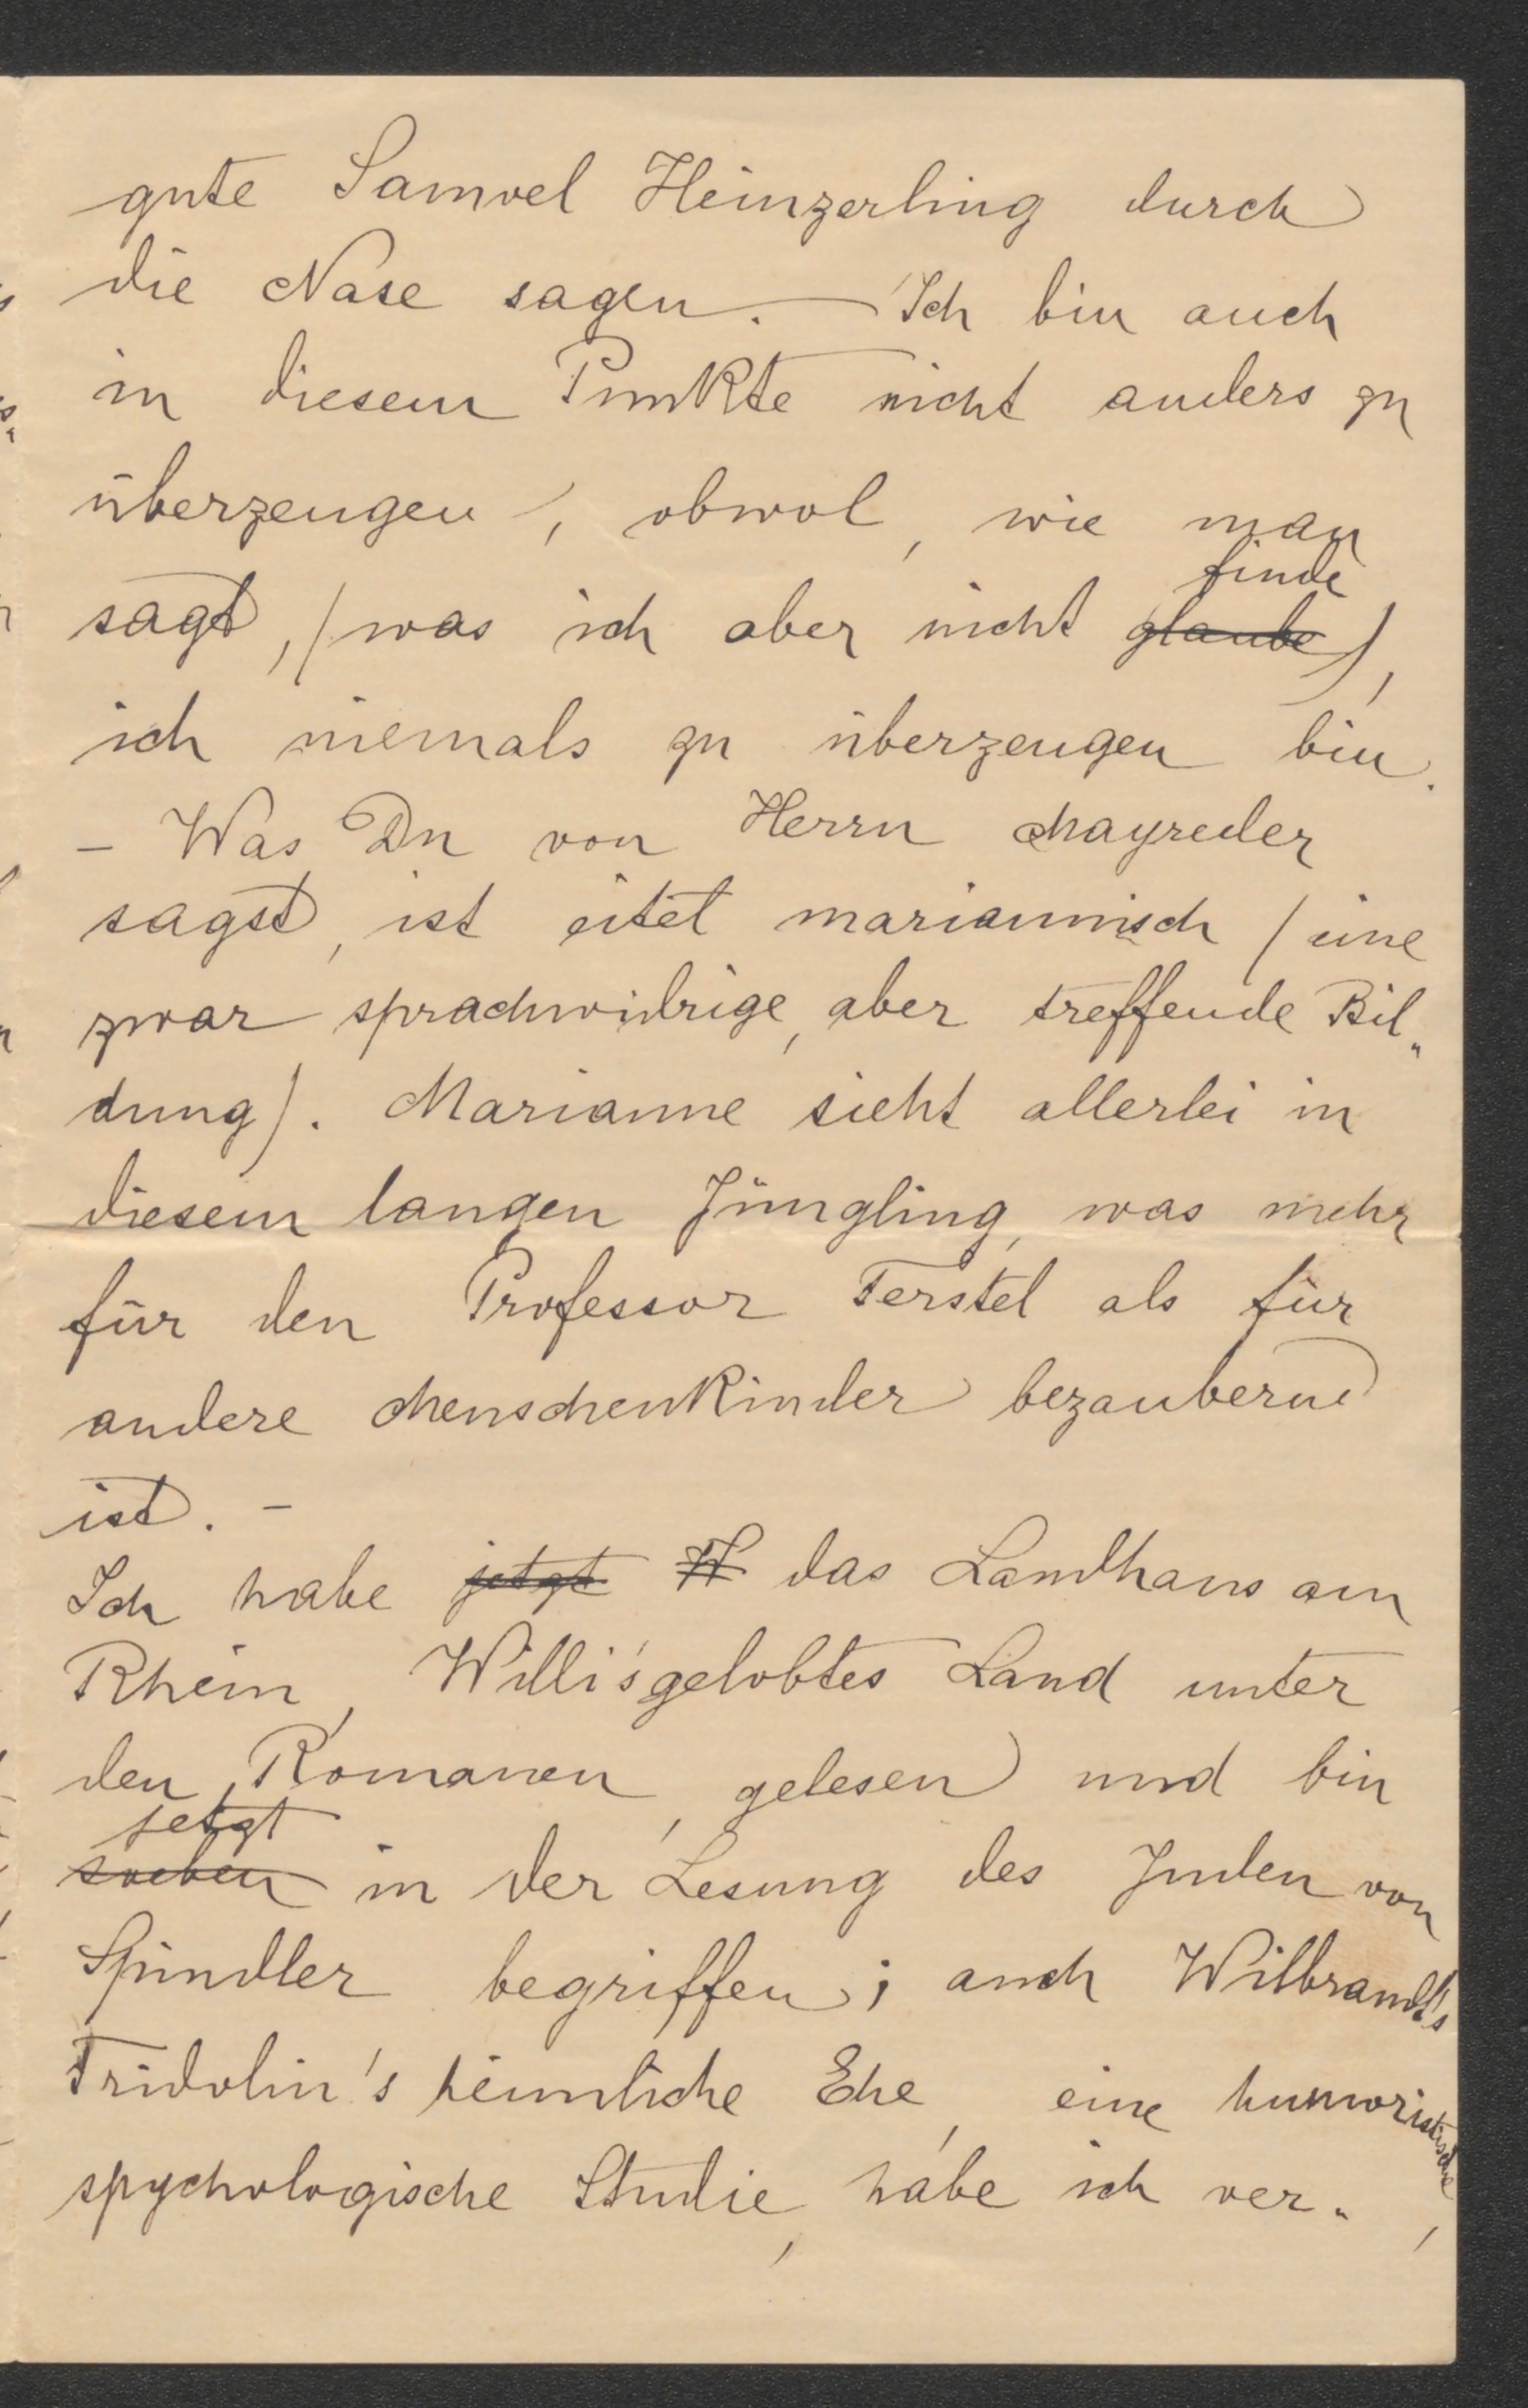 gute Samuel Heinzerling durch
die Nase sagen. – Ich bin auch
in diesem Punkte nicht anders zu
überzeugen, obwol, wie man
sagt, (was ich aber nicht ~~glaube~~ finde),
ich niemals zu überzeugen bin.
– Was Du von Herrn Mayreder
sagst, ist eitel mariannisch (eine
zwar sprachwidrige, aber treffende Bil„
dung). Marianne sieht allerlei in
diesem langen Jüngling, was mehr
für den Professor Ferstel als für
andere Menschenkinder bezaubernd
ist. –
Ich habe ~~jetzt~~ ~~W~~ das Landhaus am
Rhein, Willi's gelobtes Land unter
den Romanen, gelesen und bin
~~soeben~~ jetzt in der Lesung des Juden von
Spindler begriffen; auch Wilbrandt's
Fridolin's heimliche Ehe, eine humoristische,
spychologische Studie, habe ich ver„